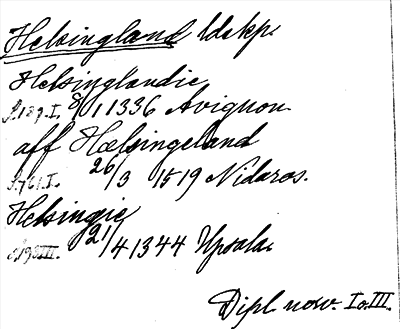 Helsingland ldskp.
Helsinglandie
S.189.I. 8/1 1336 Avignon
aff Hælsingeland
S.761.I. 26/3 1519 Nidaros.
Helsingie
S.195.III. 21/4 1344 Upsala.
Dipl. norv. I o. III.